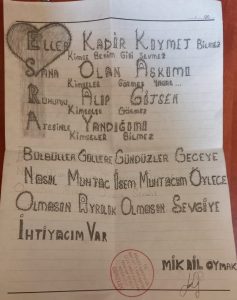 Eller Kadir Kıymet Bilmez
Kimse Benim Gibi Sevmez
Sana Olan Aşkımı
Kimseler Görmez
Ruhumu Alıp Gitsen
Kimseler Görmez
Ateşinle Yandığımı
Kimseler Bilmez
Bülbüller Güllere Gündüzler Geceye
Nasıl Muhtaç İsem Muhtacım Öylece
Olmasın Ayrılık Olmasın Sevgiye
İhtiyacım Var
Mikail Oymak